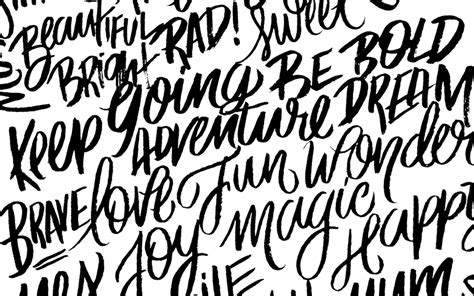 Beautiful RAD! Sweet
Bright
Keep Going BE BOLD
ADVENTURE DREAM
BRAVE love fun wonder
Joy magic Happy